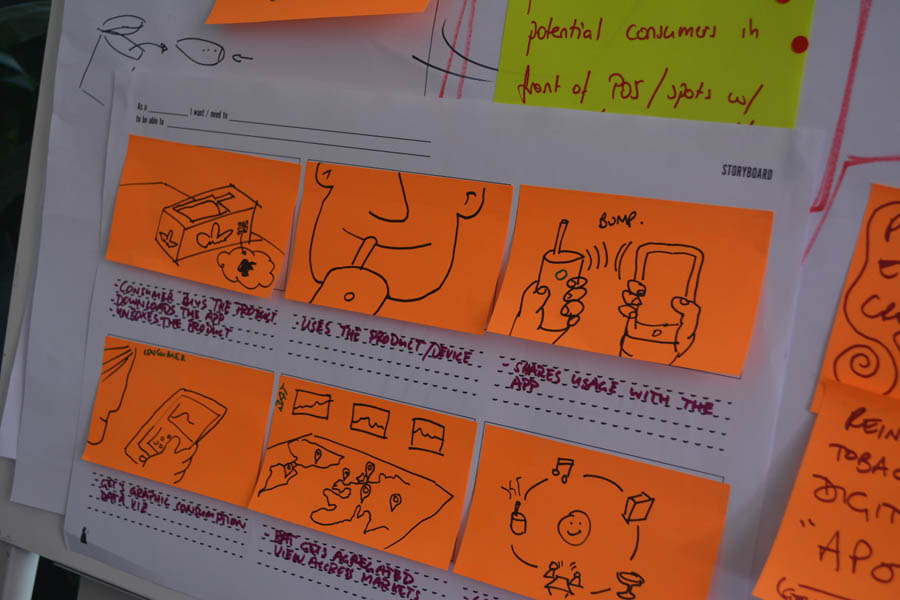 potential consumers in
front of POS/spots w/
As a ____________, I want / need to ____________
to be able to ____________
STORYBOARD
BUMP.
- CONSUMER BUYS THE PRODUCT
DOWNLOADS THE APP
UNBOXES THE PRODUCT
- USES THE PRODUCT/DEVICE
- SHARES USAGE WITH THE
APP
CONSUMER
BAT
GETS GRAPHIC CONSUMPTION
DATA VIZ
BAT GETS AGREGATED
VIEW ACCROS MARKETS
REIN
TOBAC
DIGIT
"APO